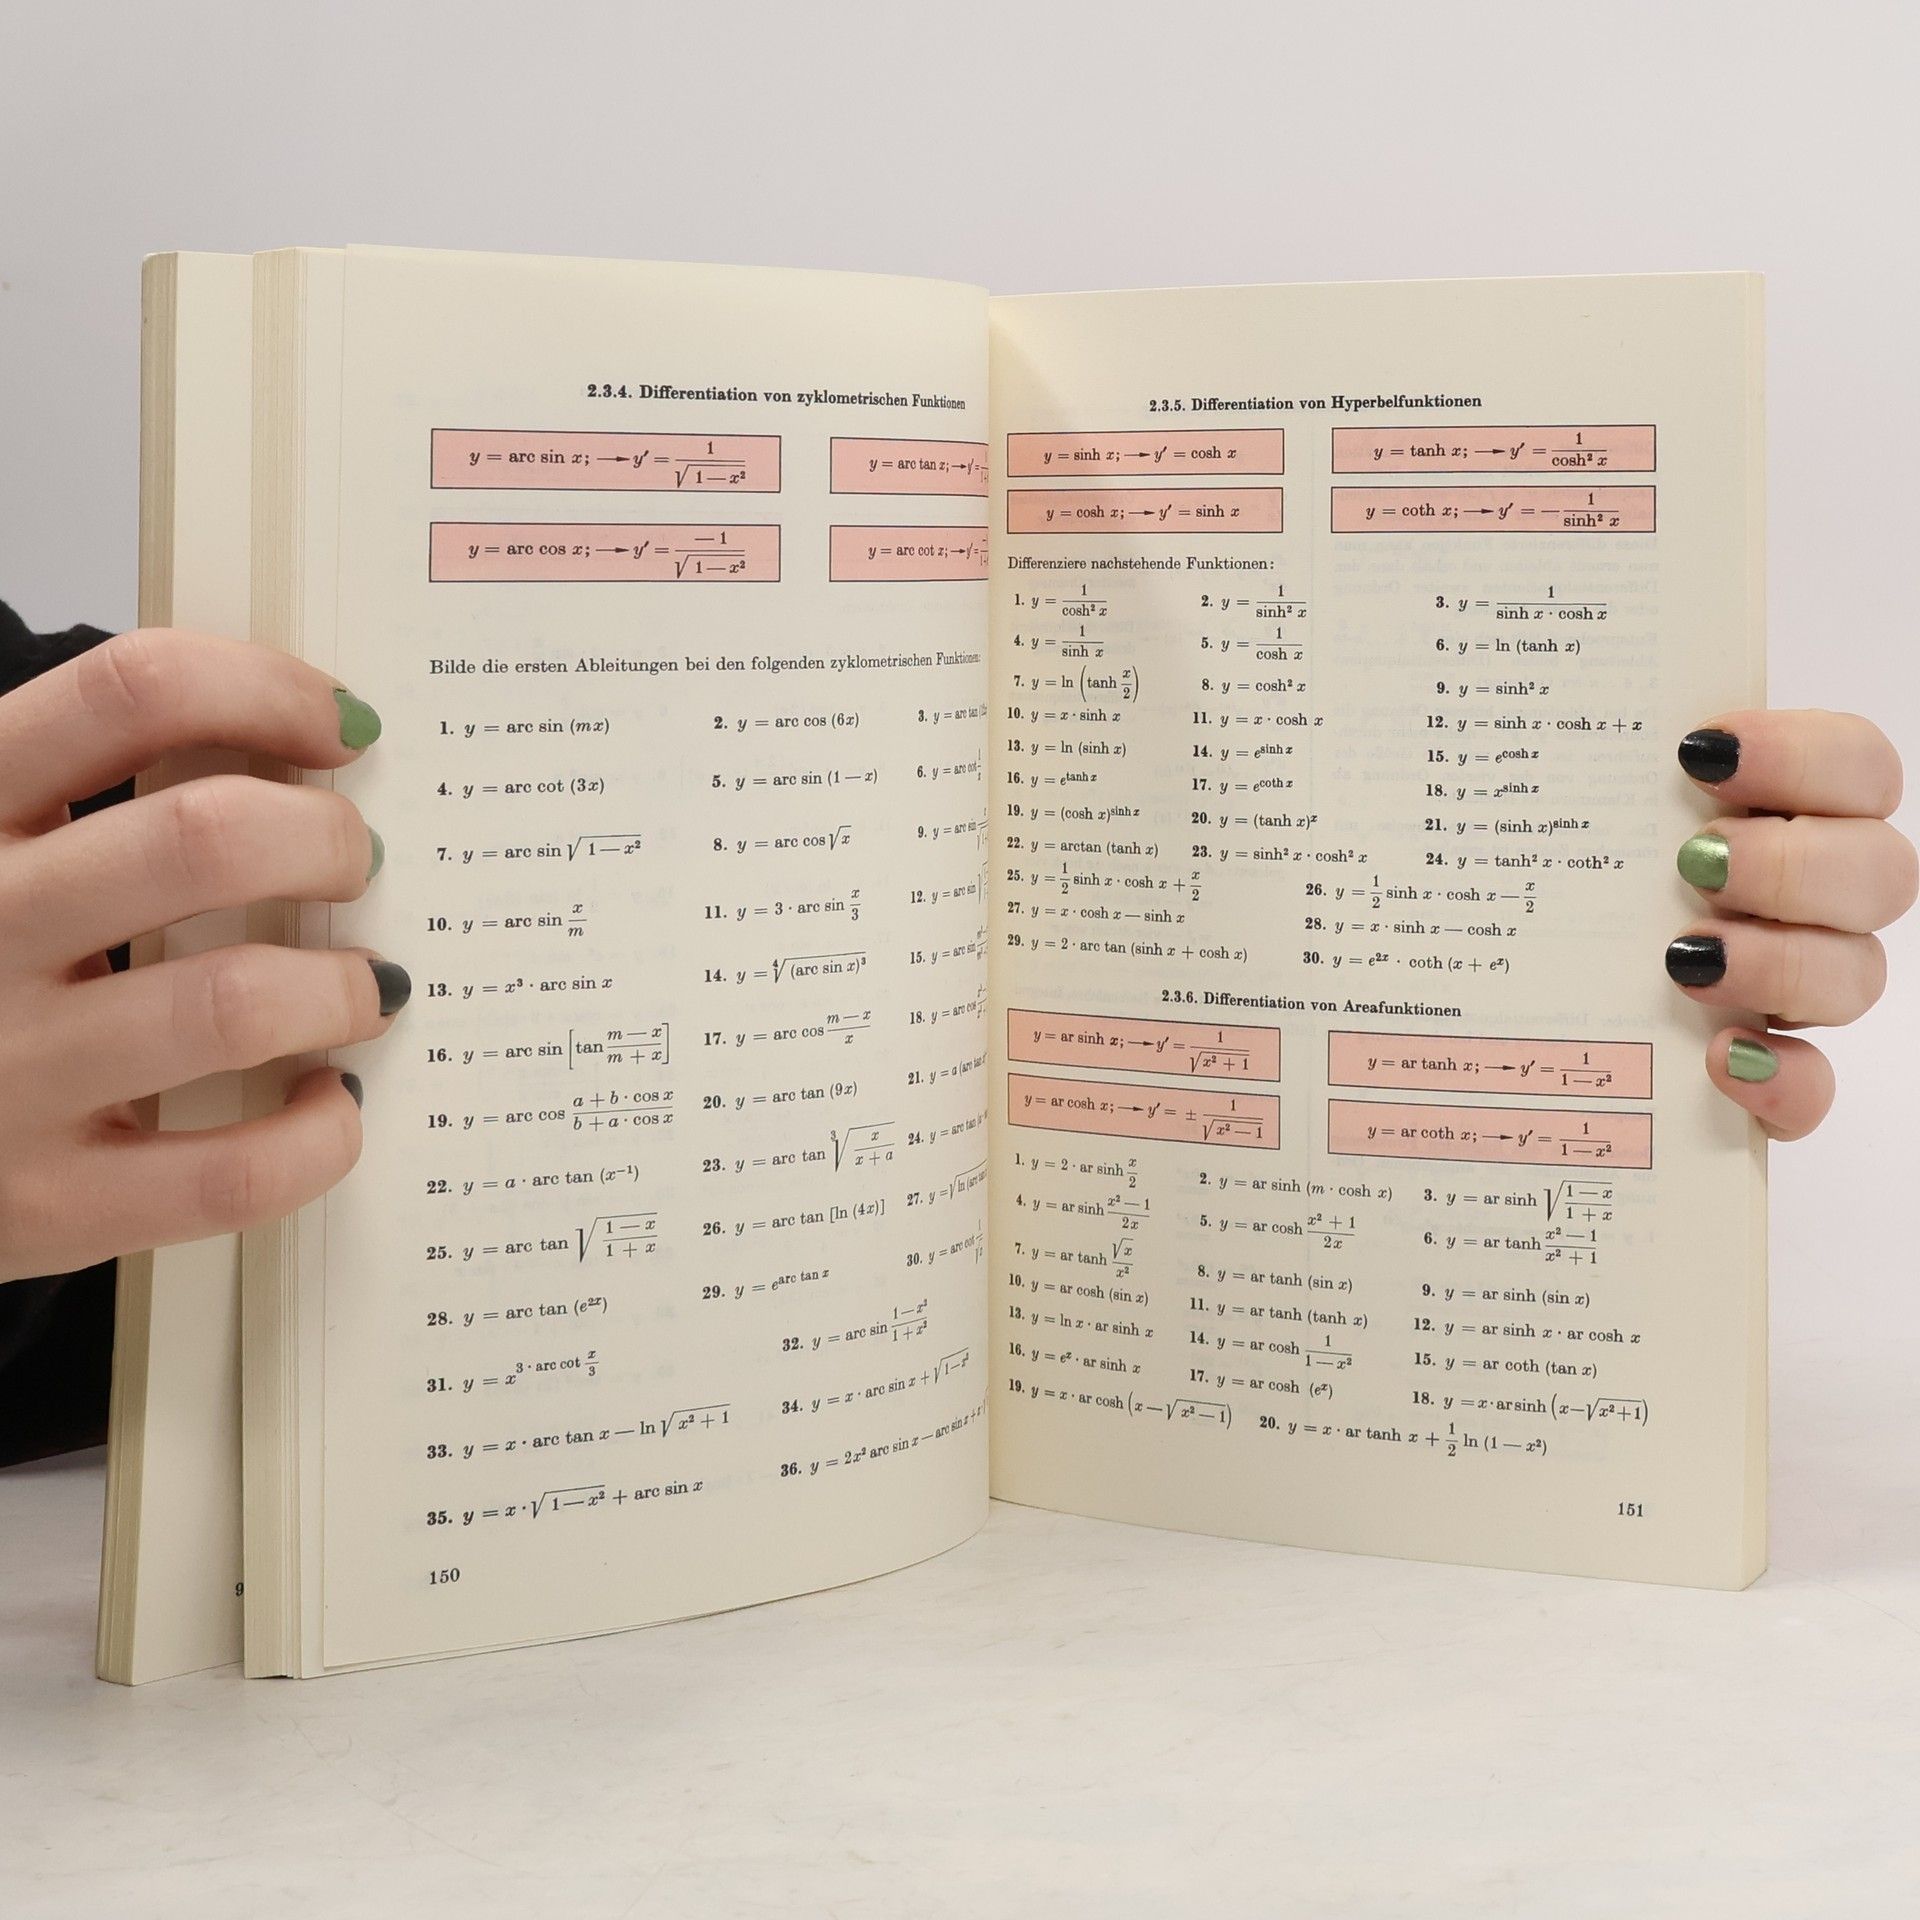 2.3.4. Differentiation von zyklometrischen Funktionen
y = arc sin x; → y′ = 1/√(1−x²)
y = arc tan x; → y′ =
y = arc cos x; → y′ = −1/√(1−x²)
y = arc cot x; → y′ =
Bilde die ersten Ableitungen bei den folgenden zyklometrischen Funktionen:
1. y = arc sin (mx) 2. y = arc cos (6x) 3. y = arc tan
4. y = arc cot (3x) 5. y = arc sin (1 — x) 6. y = arc cot
7. y = arc sin √(1—x²) 8. y = arc cos √x 9. y = arc sin
10. y = arc sin x/m 11. y = 3 · arc sin x/3 12. y = arc sin
13. y = x³ · arc sin x 14. y = ⁴√(arc sin x)³ 15. y = arc sin
16. y = arc sin [tan (m — x)/(m + x)] 17. y = arc cos (m — x)/x 18. y = arc cos
19. y = arc cos (a + b · cos x)/(b + a · cos x) 20. y = arc tan (9x) 21. y = a (arc tan
22. y = a · arc tan (x⁻¹) 23. y = arc tan ³√(x/(x + a)) 24. y = arc tan
25. y = arc tan √((1 — x)/(1 + x)) 26. y = arc tan [ln (4x)] 27. y = √ln (arc
28. y = arc tan (e²ˣ) 29. y = e^(arc tan x) 30. y = arc cot
31. y = x^(3 · arc cot x/3) 32. y = arc sin (1—x²)/(1+x²)
33. y = x · arc tan x — ln √(x² + 1) 34. y = x · arc sin x + √(1—x²)
35. y = x · √(1—x²) + arc sin x 36. y = 2x² arc sin x — arc sin x + x
150
9
2.3.5. Differentiation von Hyperbelfunktionen
y = sinh x; → y′ = cosh x
y = tanh x; → y′ = 1/cosh² x
y = cosh x; → y′ = sinh x
y = coth x; → y′ = — 1/sinh² x
Differenziere nachstehende Funktionen:
1. y = 1/cosh² x 2. y = 1/sinh² x 3. y = 1/(sinh x · cosh x)
4. y = 1/sinh x 5. y = 1/cosh x 6. y = ln (tanh x)
7. y = ln (tanh x/2) 8. y = cosh² x 9. y = sinh² x
10. y = x · sinh x 11. y = x · cosh x 12. y = sinh x · cosh x + x
13. y = ln (sinh x) 14. y = e^(sinh x) 15. y = e^(cosh x)
16. y = e^(tanh x) 17. y = e^(coth x) 18. y = x^(sinh x)
19. y = (cosh x)^(sinh x) 20. y = (tanh x)ˣ 21. y = (sinh x)^(sinh x)
22. y = arctan (tanh x) 23. y = sinh² x · cosh² x 24. y = tanh² x · coth² x
25. y = 1/2 sinh x · cosh x + x/2 26. y = 1/2 sinh x · cosh x — x/2
27. y = x · cosh x — sinh x 28. y = x · sinh x — cosh x
29. y = 2 · arc tan (sinh x + cosh x) 30. y = e²ˣ · coth (x + eˣ)
2.3.6. Differentiation von Areafunktionen
y = ar sinh x; → y′ = 1/√(x² + 1)
y = ar tanh x; → y′ = 1/(1 — x²)
y = ar cosh x; → y′ = ± 1/√(x² — 1)
y = ar coth x; → y′ = 1/(1 — x²)
1. y = 2 · ar sinh x/2 2. y = ar sinh (m · cosh x) 3. y = ar sinh √((1 — x)/(1 + x))
4. y = ar sinh (x² — 1)/2x 5. y = ar cosh (x² + 1)/2x 6. y = ar tanh (x² — 1)/(x² + 1)
7. y = ar tanh √x/x² 8. y = ar tanh (sin x) 9. y = ar sinh (sin x)
10. y = ar cosh (sin x) 11. y = ar tanh (tanh x) 12. y = ar sinh x · ar cosh x
13. y = ln x · ar sinh x 14. y = ar cosh 1/(1 — x²) 15. y = ar coth (tan x)
16. y = eˣ · ar sinh x 17. y = ar cosh (eˣ) 18. y = x · ar sinh (x—√(x²+1))
19. y = x · ar cosh (x — √(x² — 1)) 20. y = x · ar tanh x + 1/2 ln (1 — x²)
151